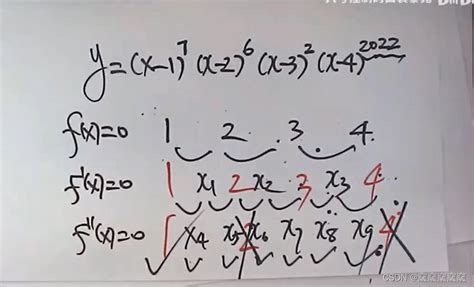 y=(x-1)⁷(x-2)⁶(x-3)²(x-4)²⁰²²
f(x)=0 1 2 3 4
f'(x)=0 1 x₁ 2 x₂ 3 x₃ 4
f''(x)=0 1 x₄ x₅ 2 x₆ x₇ x₈ x₉ 4